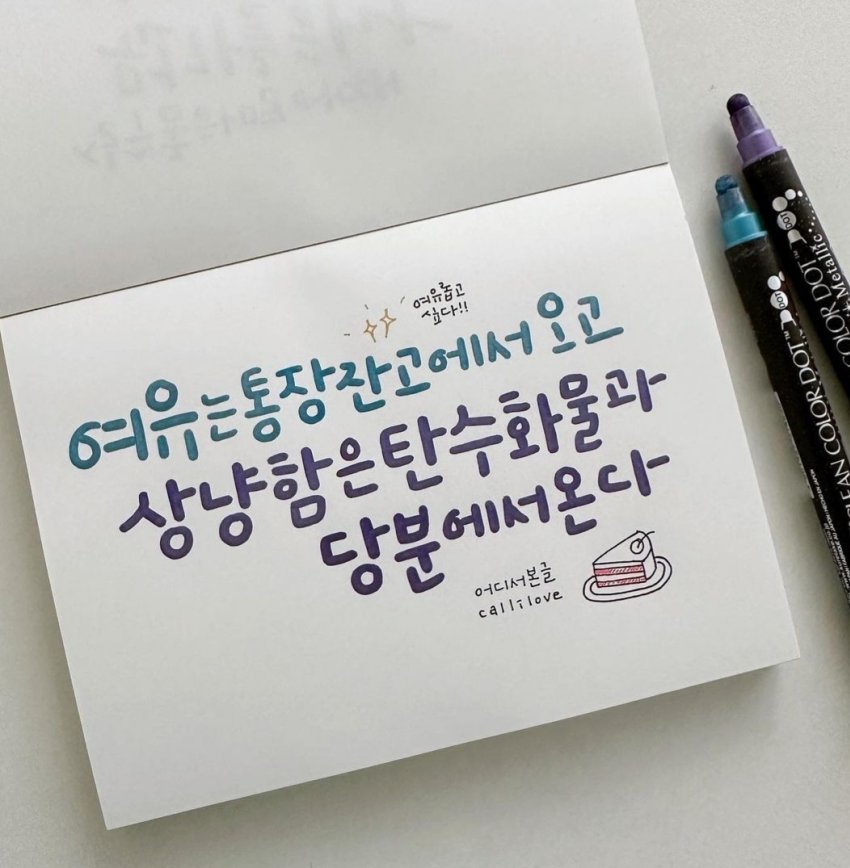 여유롭고
싶다!!
여유는 통장 잔고에서 오고
상냥함은 탄수화물과
당분에서 온다
어디서 본 글
callilove
DOT
COLOR DOT™ Metallic
DOT
CLEAN COLOR DOT™